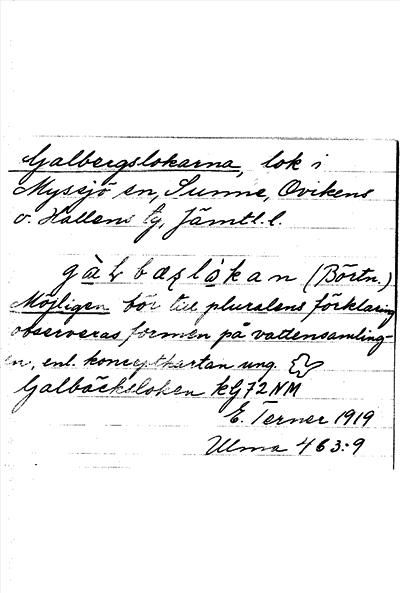 Galbergslokarna, lok i
Myssjö sn, Sunne, Ovikens
o. Hallens tg, Jämtl. l.
gàḷbæṣlòkan (Börtn.)
Möjligen bör till pluralens förklaring
observeras formen på vattensamling-
en, enl. konceptkartan ung.
Galbäcksloken kG72NM
E. Terner 1919
Ulma 463:9